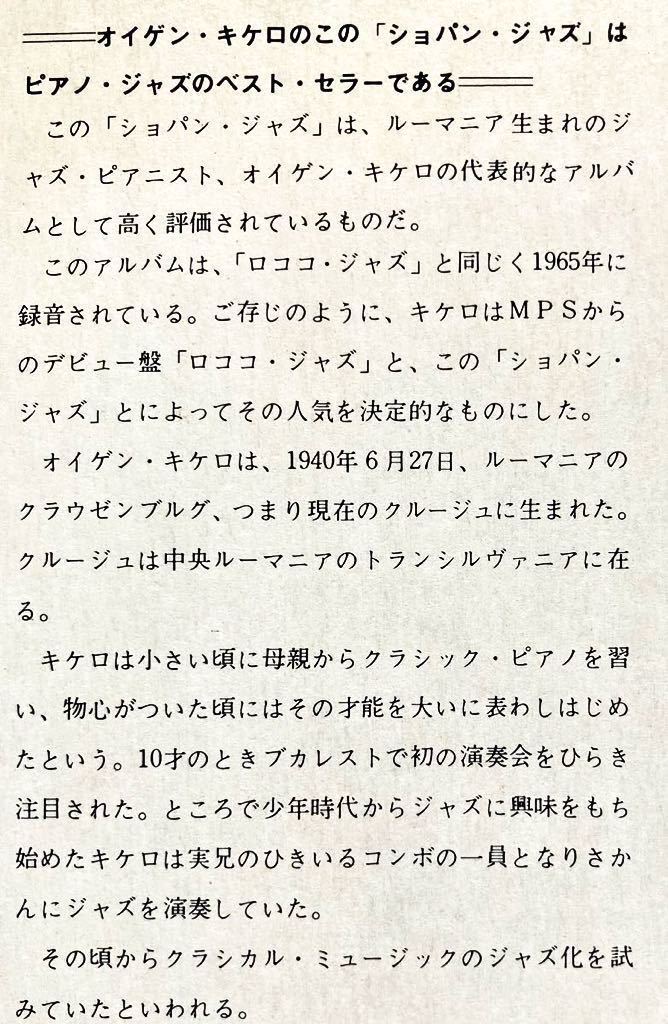 ══オイゲン・キケロのこの「ショパン・ジャズ」は
ピアノ・ジャズのベスト・セラーである══
この「ショパン・ジャズ」は、ルーマニア生まれのジ
ャズ・ピアニスト、オイゲン・キケロの代表的なアルバ
ムとして高く評価されているものだ。
このアルバムは、「ロココ・ジャズ」と同じく1965年に
録音されている。ご存じのように、キケロはMPSから
のデビュー盤「ロココ・ジャズ」と、この「ショパン・
ジャズ」とによってその人気を決定的なものにした。
オイゲン・キケロは、1940年6月27日、ルーマニアの
クラウゼンブルグ、つまり現在のクルージュに生まれた。
クルージュは中央ルーマニアのトランシルヴァニアに在
る。
キケロは小さい頃に母親からクラシック・ピアノを習
い、物心がついた頃にはその才能を大いに表わしはじめ
たという。10才のときブカレストで初の演奏会をひらき
注目された。ところで少年時代からジャズに興味をもち
始めたキケロは実兄のひきいるコンボの一員となりさか
んにジャズを演奏していた。
その頃からクラシカル・ミュージックのジャズ化を試
みていたといわれる。